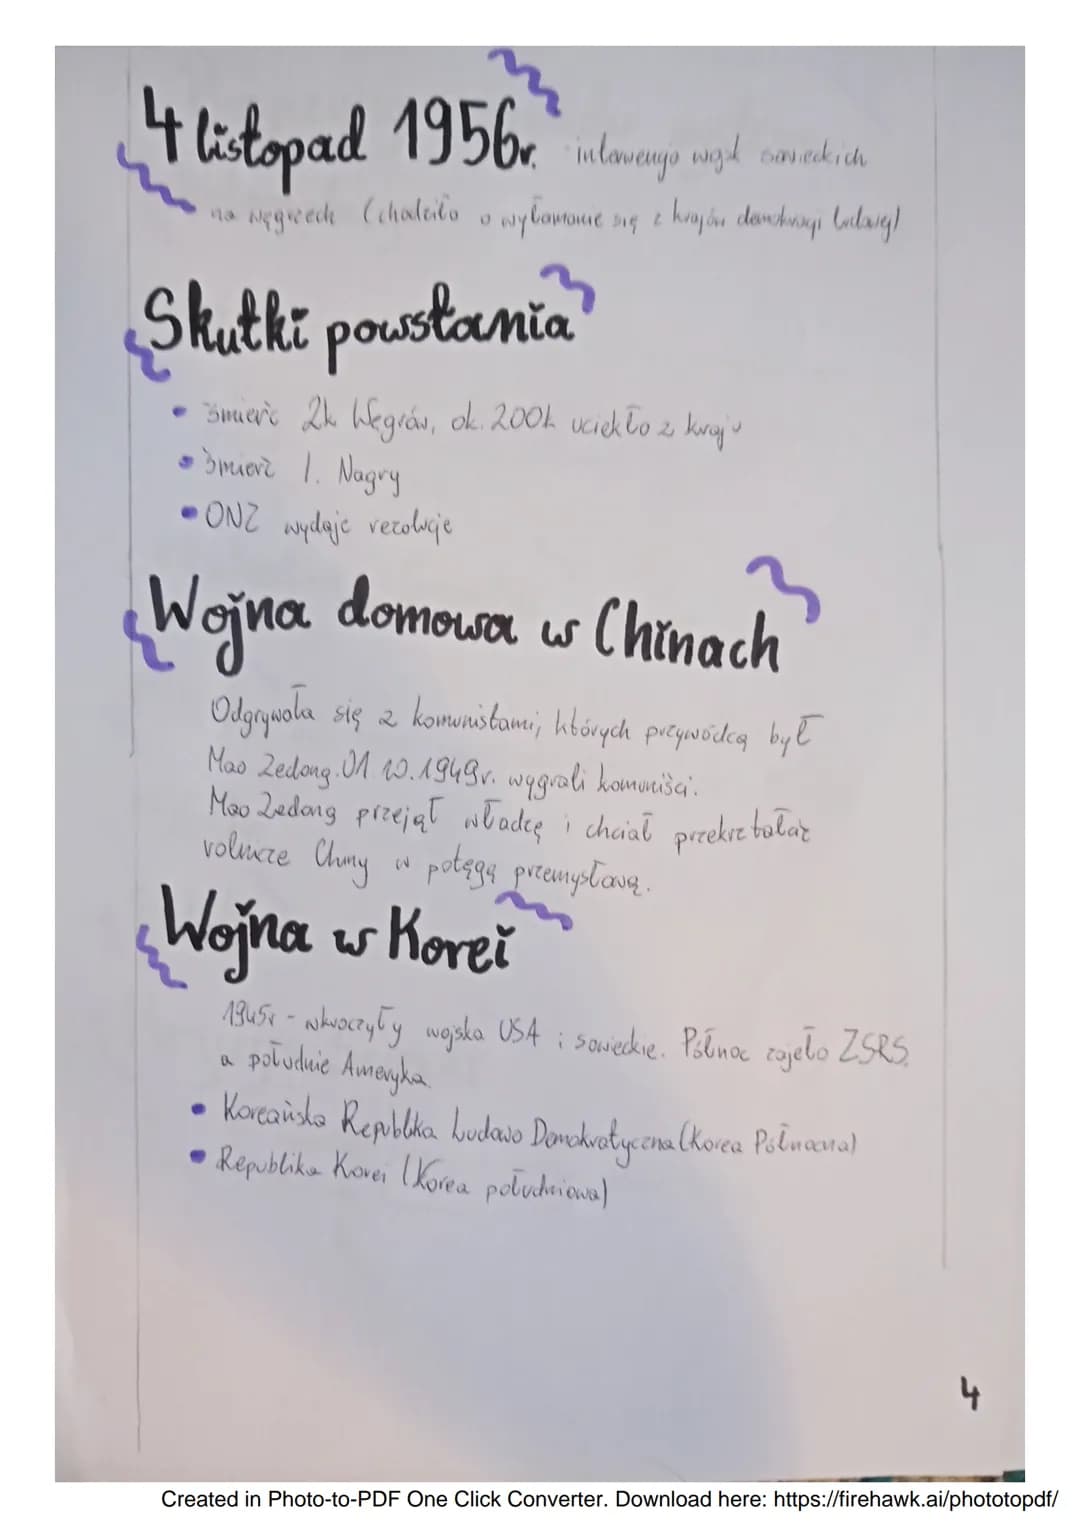 4 listopad 1956r. interwencja wojsk sowieckich
na węgrzech (chodziło o wyłamanie się z krajów demokracji ludowej)
Skutki powstania
• śmierć 2k Węgrów, ok. 200k uciekło z kraju
• śmierć I. Nagry
• ONZ wydaje rezolucje
Wojna domowa w Chinach
Odgrywała się z komunistami, których przywódcą był
Mao Zedong. 01.10.1949r. wygrali komuniści.
Mao Zedong przejął władzę i chciał przekształcać
rolnicze Chiny w potęgę przemysłową.
Wojna w Korei
1945r - wkroczyły wojska USA i sowieckie. Północ zajeło ZSRS,
a południe Ameryka.
• Koreańska Republika Ludowo Demokratyczna (Korea Północna)
• Republika Korei (Korea południowa)
4
Created in Photo-to-PDF One Click Converter. Download here: https://firehawk.ai/phototopdf/